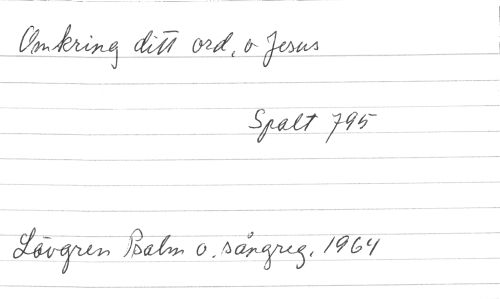 Omkring ditt ord, o Jesus
Spalt 795
Lövgren Psalm o. sångreg. 1964